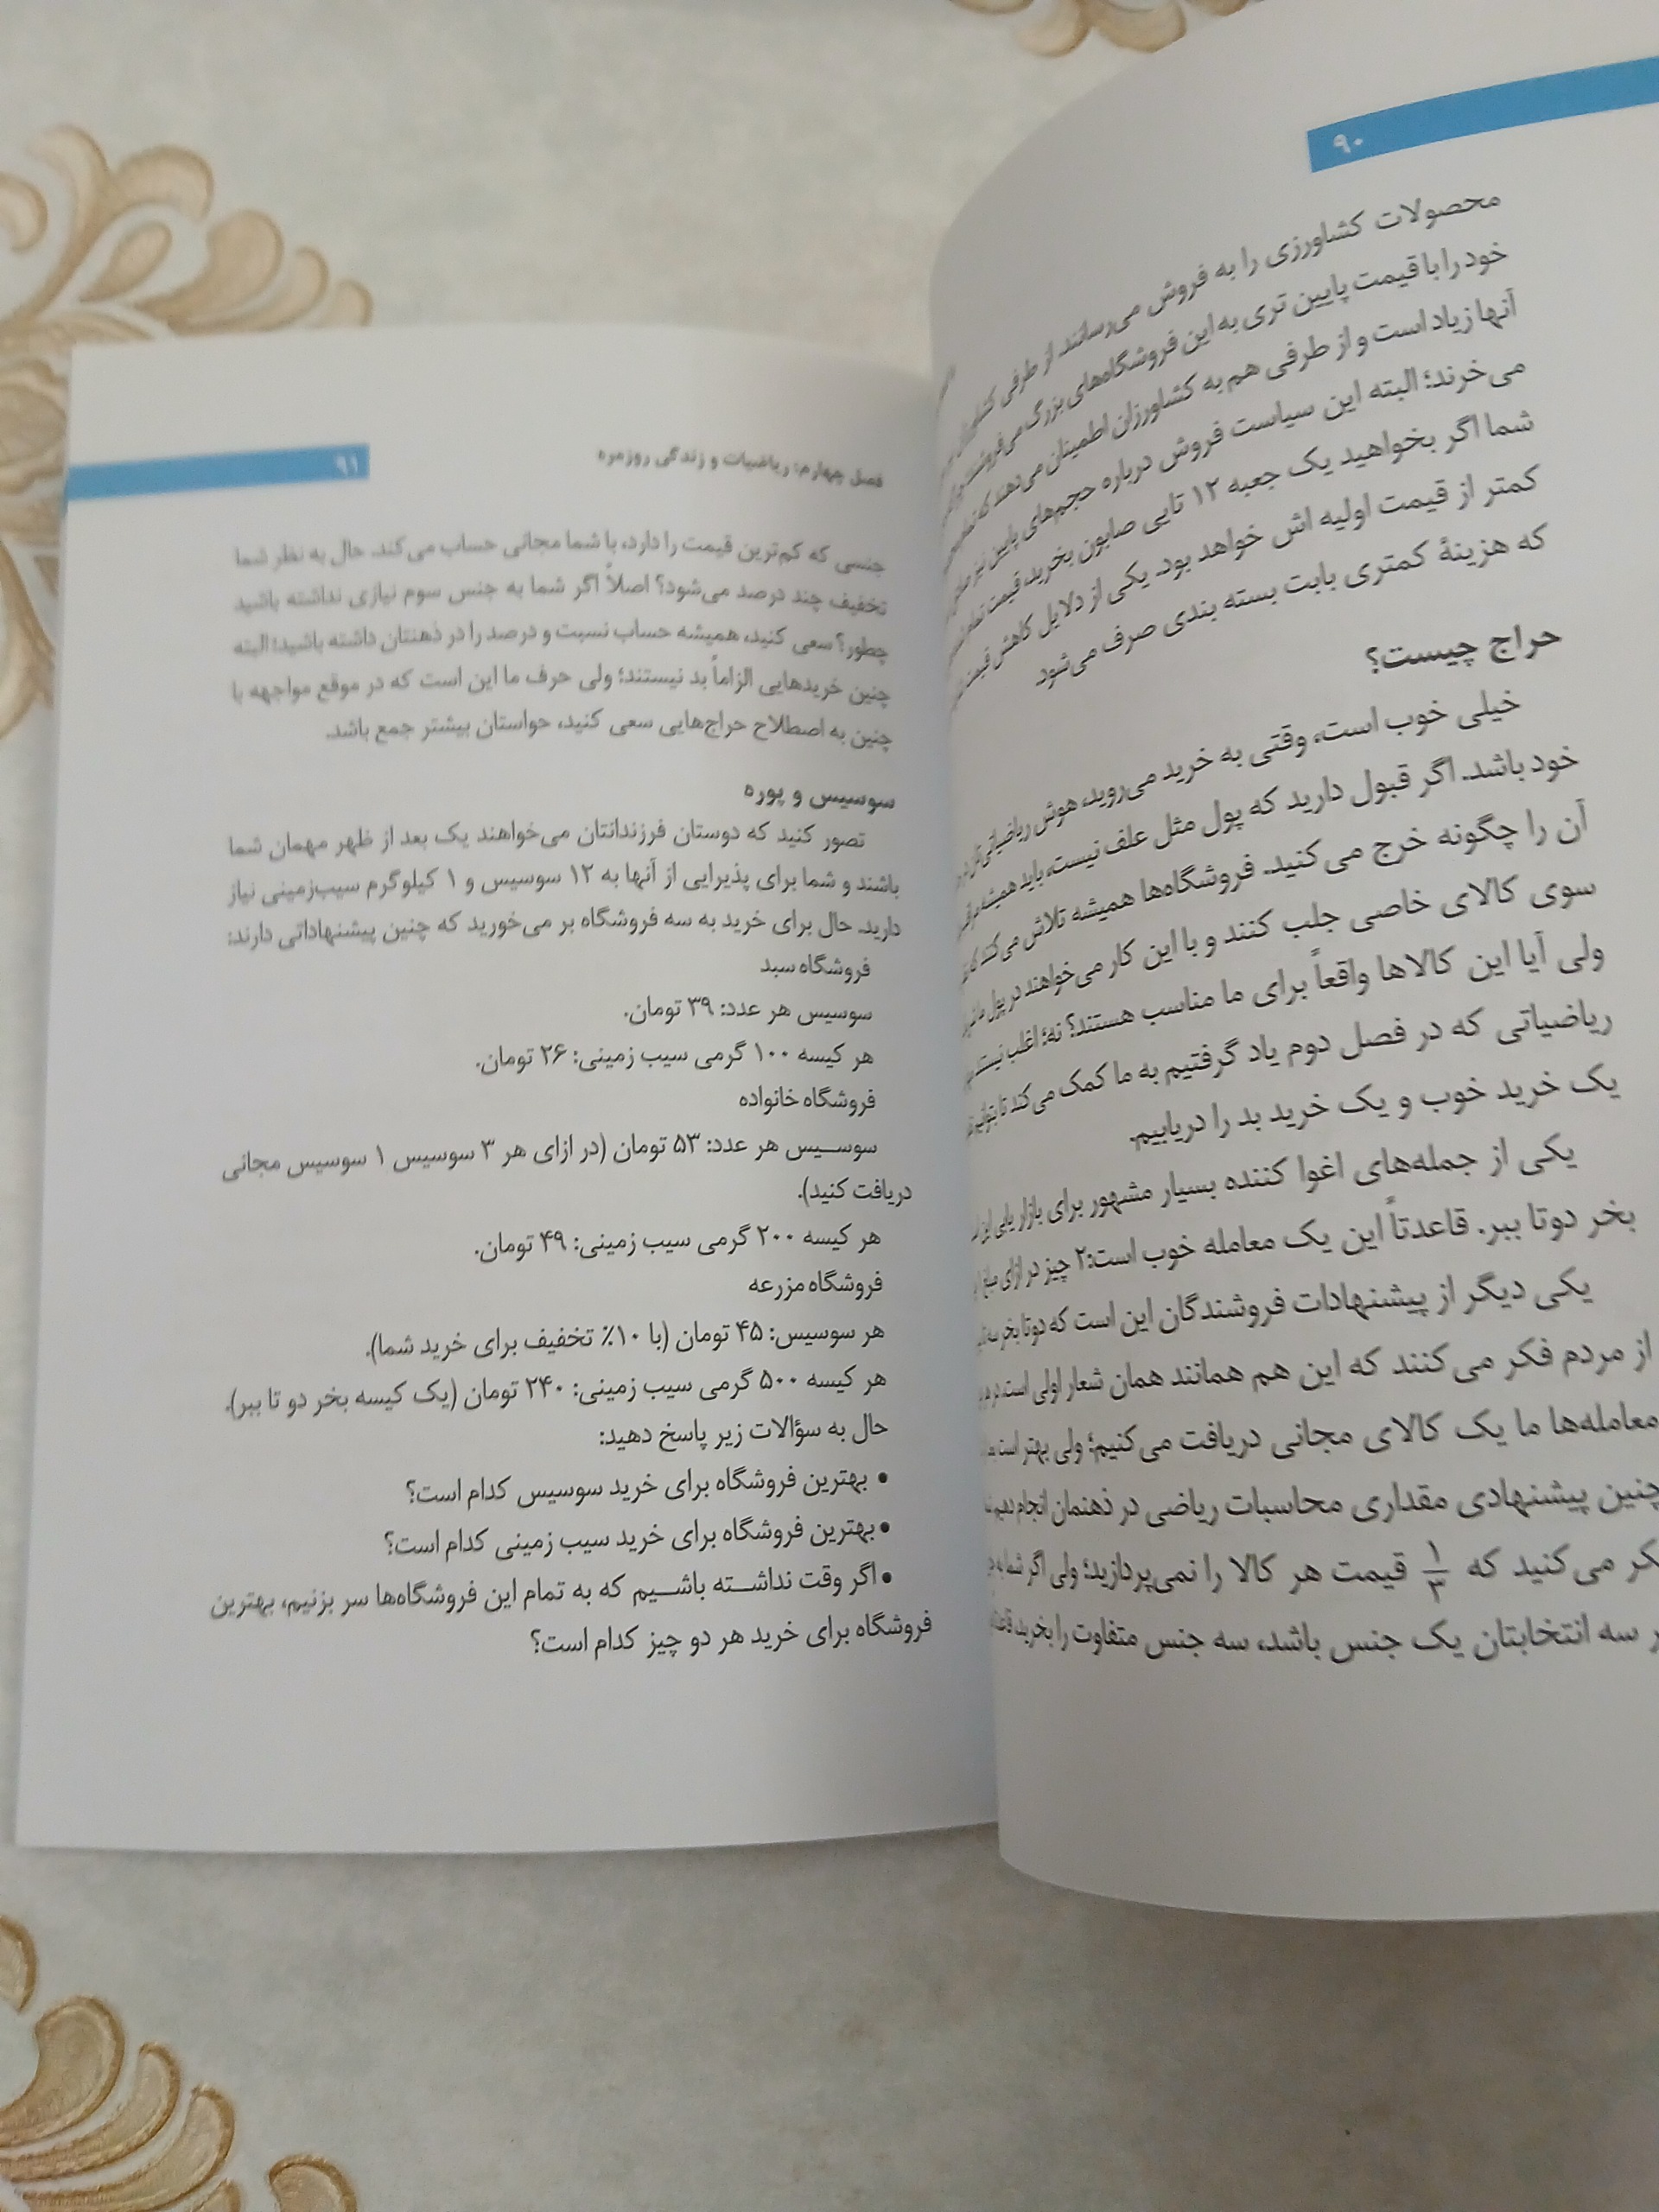 ۹۰
محصولات کشاورزی را به فروش می‌رسانند. از طرفی
خود را با قیمت پایین تری به این فروشگاه‌های بزرگ می‌فروشند
آنها زیاد است و از طرفی هم به کشاورزان اطمینان می‌دهند که
می‌خرند؛ البته این سیاست فروش درباره حجم‌های پایین نیز
شما اگر بخواهید یک جعبه ۱۲ تایی صابون بخرید، قیمت
کمتر از قیمت اولیه اش خواهد بود. یکی از دلایل کاهش قیمت
که هزینهٔ کمتری بابت بسته بندی صرف می‌شود.
حراج چیست؟
خیلی خوب است، وقتی به خرید می‌روید، هوش ریاضیاتی‌تان
خود باشد. اگر قبول دارید که پول مثل علف نیست، باید همیشه
آن را چگونه خرج می‌کنید. فروشگاه‌ها همیشه تلاش می‌کنند
سوی کالای خاصی جلب کنند و با این کار می‌خواهند در پول
ولی آیا این کالاها واقعاً برای ما مناسب هستند؟ نه؛ اغلب نیستند
ریاضیاتی که در فصل دوم یاد گرفتیم به ما کمک می‌کند تا بتوانیم
یک خرید خوب و یک خرید بد را دریابیم.
یکی از جمله‌های اغوا کننده بسیار مشهور برای بازار یابی این
بخر دوتا ببر. قاعدتاً این یک معامله خوب است:۲ چیز در ازای
یکی دیگر از پیشنهادات فروشندگان این است که دوتا بخر
از مردم فکر می‌کنند که این هم همانند همان شعار اولی است
معامله‌ها ما یک کالای مجانی دریافت می‌کنیم؛ ولی بهتر است
چنین پیشنهادی مقداری محاسبات ریاضی در ذهنمان انجام دهیم
می‌کنید که ۱/۳ قیمت هر کالا را نمی‌پردازید؛ ولی اگر شما
سه انتخابتان یک جنس باشد، سه جنس متفاوت را بخرید
فصل چهارم: ریاضیات و زندگی روزمره
۹۱
جنسی که کم‌ترین قیمت را دارد، با شما مجانی حساب می‌کند. حال به نظر شما
تخفیف چند درصد می‌شود؟ اصلاً اگر شما به جنس سوم نیازی نداشته باشید
چطور؟ سعی کنید، همیشه حساب نسبت و درصد را در ذهنتان داشته باشید؛ البته
چنین خریدهایی الزاماً بد نیستند؛ ولی حرف ما این است که در موقع مواجهه با
چنین به اصطلاح حراج‌هایی سعی کنید، حواستان بیشتر جمع باشد.
سوسیس و پوره
تصور کنید که دوستان فرزندانتان می‌خواهند یک بعد از ظهر مهمان شما
باشند و شما برای پذیرایی از آنها به ۱۲ سوسیس و ۱ کیلوگرم سیب‌زمینی نیاز
دارید. حال برای خرید به سه فروشگاه بر می‌خورید که چنین پیشنهاداتی دارند:
فروشگاه سبد
سوسیس هر عدد: ۳۹ تومان.
هر کیسه ۱۰۰ گرمی سیب زمینی: ۲۶ تومان.
فروشگاه خانواده
سوسیس هر عدد: ۵۳ تومان (در ازای هر ۳ سوسیس ۱ سوسیس مجانی
دریافت کنید).
هر کیسه ۲۰۰ گرمی سیب زمینی: ۴۹ تومان.
فروشگاه مزرعه
هر سوسیس: ۴۵ تومان (با ۱۰٪ تخفیف برای خرید شما).
هر کیسه ۵۰۰ گرمی سیب زمینی: ۲۴۰ تومان (یک کیسه بخر دو تا ببر).
حال به سؤالات زیر پاسخ دهید:
• بهترین فروشگاه برای خرید سوسیس کدام است؟
• بهترین فروشگاه برای خرید سیب زمینی کدام است؟
• اگر وقت نداشته باشیم که به تمام این فروشگاه‌ها سر بزنیم، بهترین
فروشگاه برای خرید هر دو چیز کدام است؟